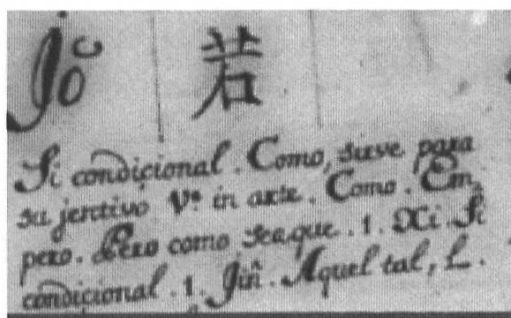 Jo 若
Si condicional. Como, sirve para
su jenctivo Vᵉ in arte. Como. Em-
pero. Pero como seaque. 1. Xi. Si
condicional. 1. Jiñ. Aquel tal, L.